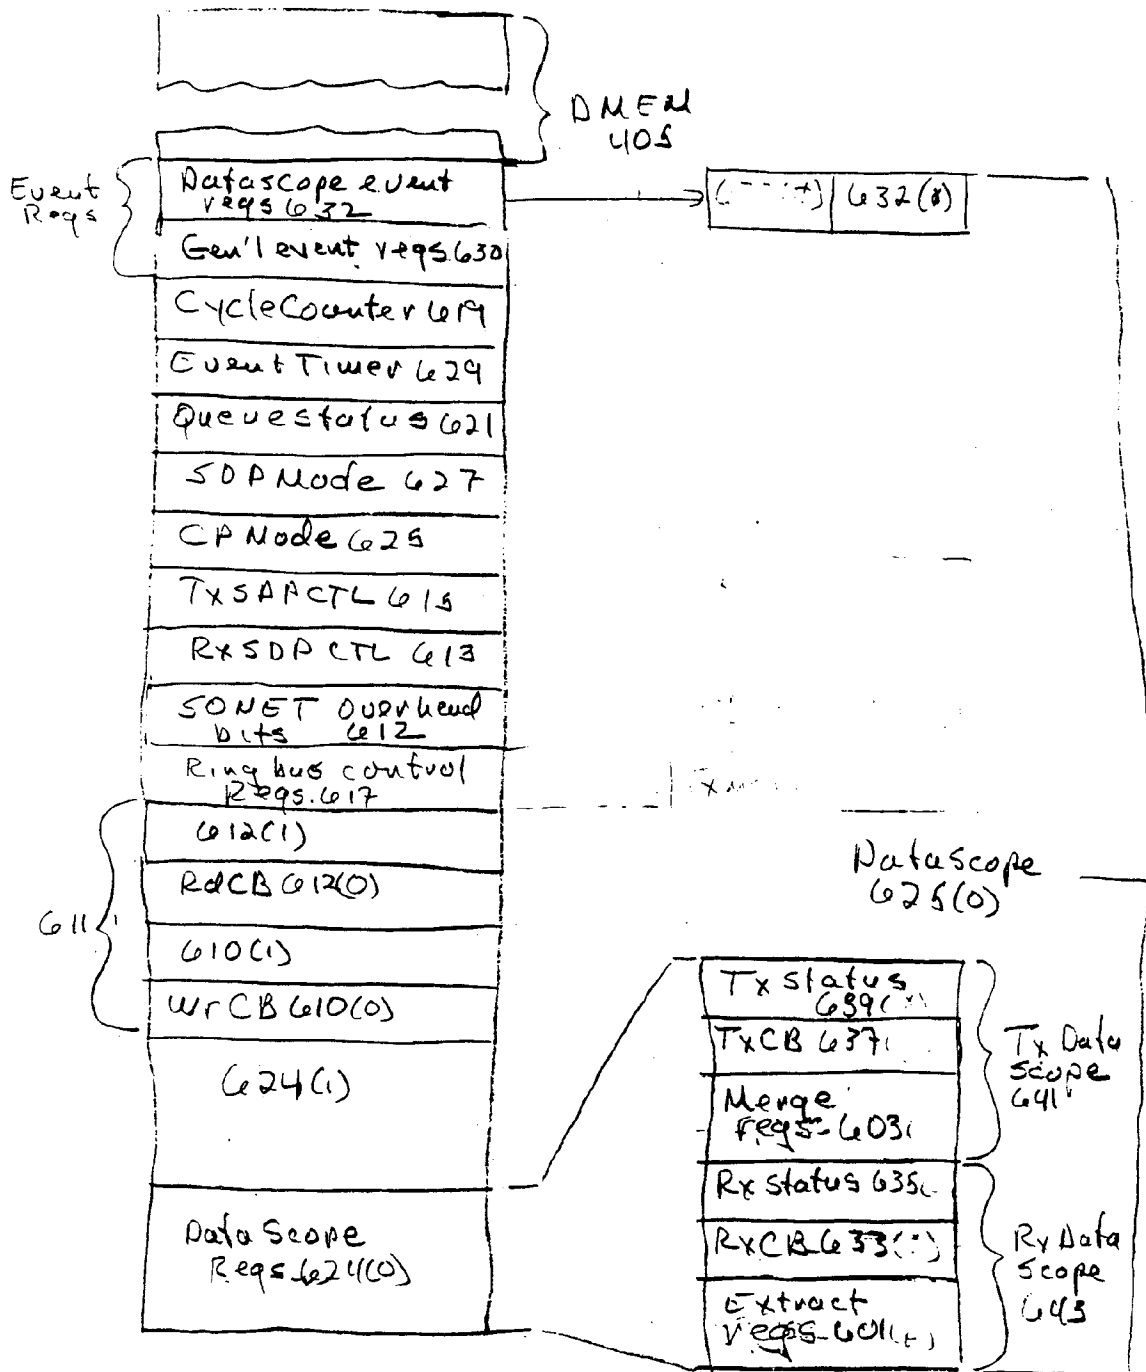 DMEM
405
Event
Regs
Datascope event
regs 632
632(0)
Gen'l event regs 630
CycleCounter 619
Event Timer 629
Queuestatus 621
SDPMode 627
CPMode 625
TxSDPCTL 615
RxSDPCTL 613
SONET Overhead
bits 612
Ring bus control
Regs. 617
611
612(1)
RdCB 612(0)
610(1)
WrCB 610(0)
624(1)
Data Scope
Regs 624(0)
DataScope
625(0)
Tx status
639
TxCB 637
Merge
regs 603
Tx Data
Scope
641
Rx status 635
RxCB 633
Extract
regs 601
Rx Data
Scope
643